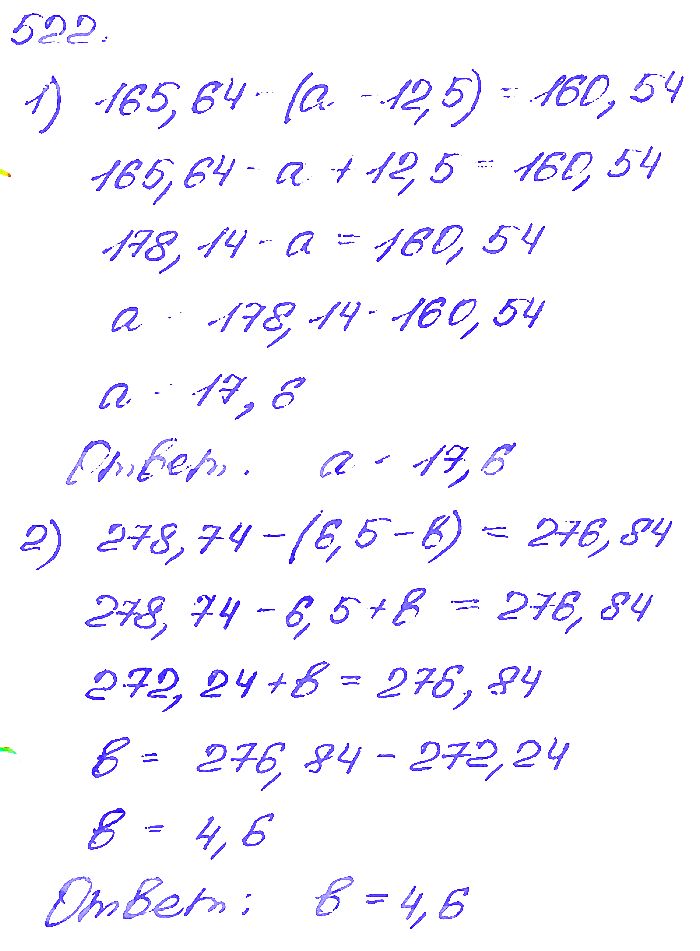 522.
1) 165,64 - (a - 12,5) = 160,54
165,64 - a + 12,5 = 160,54
178,14 - a = 160,54
a - 178,14 - 160,54
a - 17,6
Ответ. a - 17,6
2) 278,74 - (6,5 - в) = 276,84
278,74 - 6,5 + в = 276,84
272,24 + в = 276,84
в = 276,84 - 272,24
в = 4,6
Ответ: в = 4,6